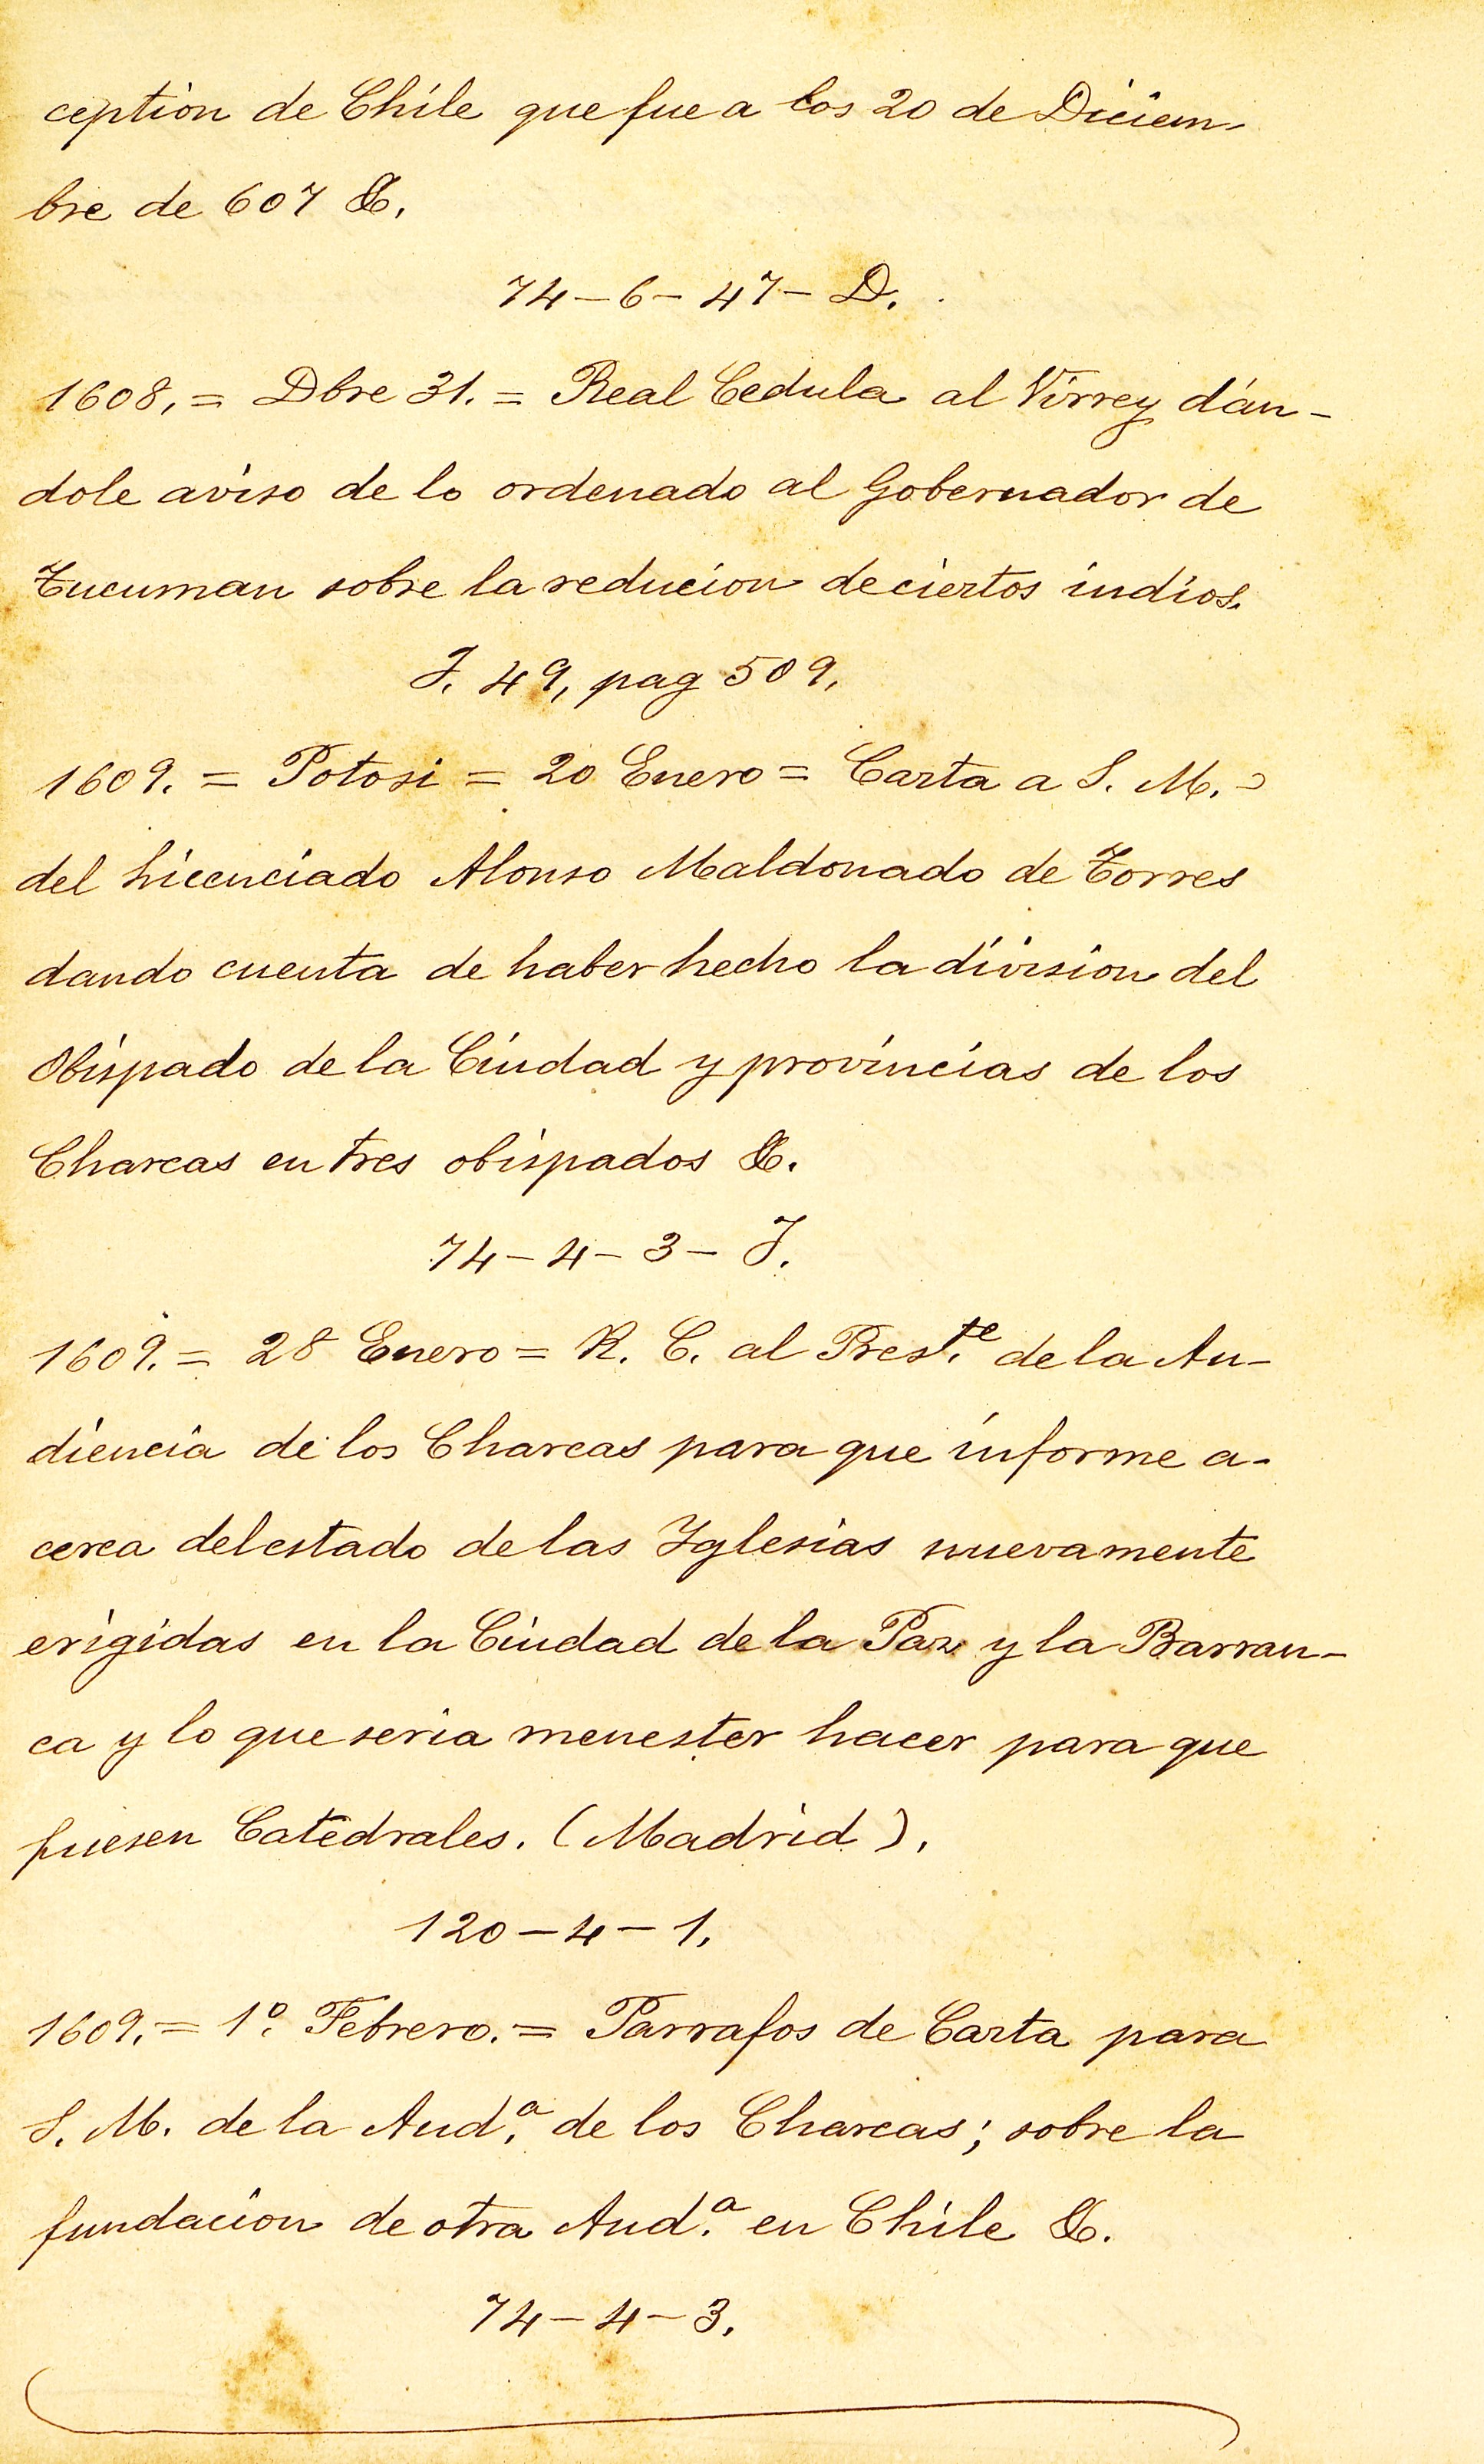 ception de Chile que fue a los 20 de Diciem-
bre de 607 &.
74-6-47-D.
1608. = Dbre 31. = Real Cedula al Virrey dán-
dole aviso de lo ordenado al Gobernador de
Tucuman sobre la reducion de ciertos indios.
J. 49, pag 509.
1609. = Potosi = 20 Enero = Carta a S. M. =
del Licenciado Alonso Maldonado de Torres
dando cuenta de haber hecho la division del
Obispado de la Ciudad y provincias de los
Charcas en tres obispados &.
74-4-3-J.
1609. = 28 Enero = R. C. al Pres.te de la Au-
diencia de los Charcas para que informe a-
cerca del estado de las Iglesias nuevamente
erigidas en la Ciudad de la Paz y la Barran-
ca y lo que seria menester hacer para que
fuesen Catedrales. (Madrid).
120-4-1.
1609. = 1º. Febrero. = Parrafos de Carta para
S. M. de la Aud.a de los Charcas; sobre la
fundacion de otra Aud.a en Chile &.
74-4-3.